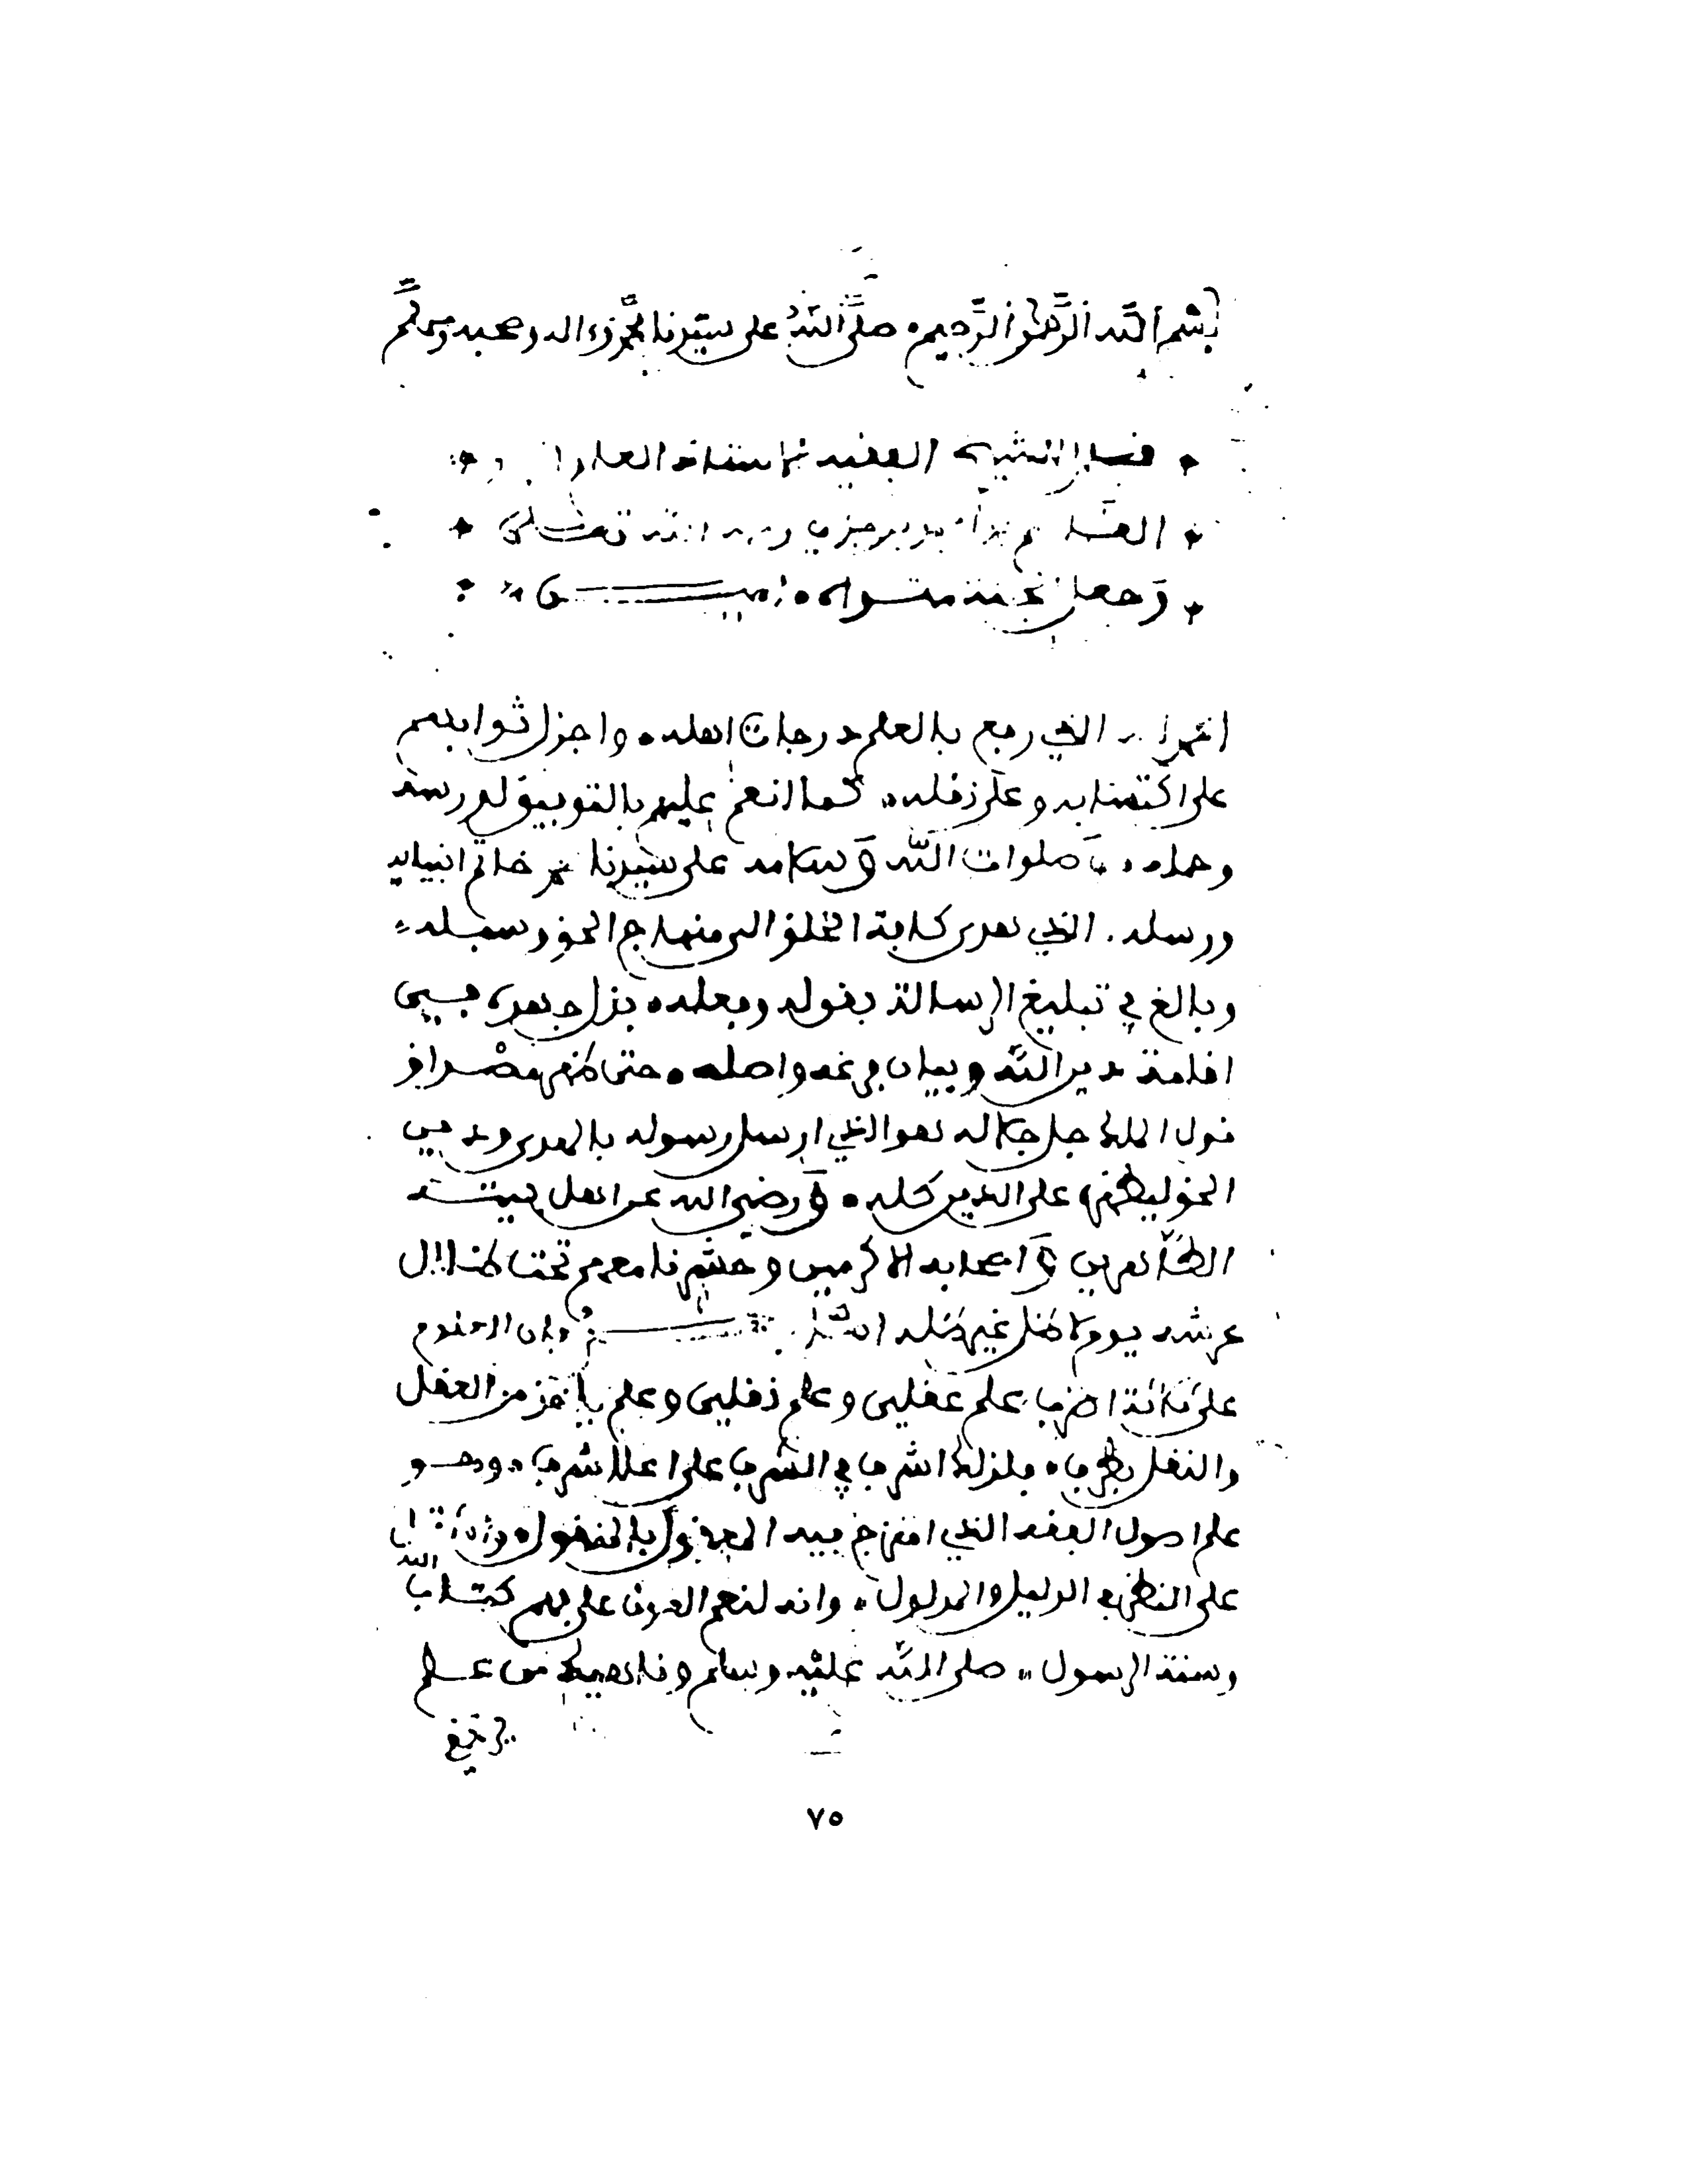 بسم الله الرحمن الرحيم صلى الله على سيدنا محمد وءاله وصحبه وسلم
قال الشيخ الفقيه الاستاذ
ابن جزي رحمه الله تعلى
وجعل الجنة مثواه امين
الحمد لله الذي رفع بالعلم درجات اهله واجزل ثوابهم
على اكتسابه وعلى نقله كما انعم عليهم بالتوفيق لدرسه
وحمله وصلوات الله وسلامه على سيدنا محمد خاتم انبيايه
ورسله الذي هدى كافة الخلق الى منهاج الحق وسبله
وبالغ في تبليغ الرسالة بقوله وفعله بذل جهده في
اقامة دين الله وبيان فرعه واصله حتى ظهر مصداق
قول الملك جل جلاله هو الذي ارسل رسوله بالهدى ودين
الحق ليظهره على الدين كله ورضي الله عن اهل بيته
الطاهرين واصحابه الاكرمين وحشرنا معهم تحت ظلال
عرشه يوم لا ظل غير ظله فان العلوم
على ثلاثة اضرب علم عقلي وعلم نقلي وعلم ياخذ من العقل
والنقل بطرف فلذلك اشرف في الشرف على اعلا شرف وهو
علم اصول الفقه الذي امتزج فيه المعقول بالمنقول
على النظر في الدليل والمدلول وانه لنعم العون على فهم كتاب الله
وسنة الرسول صلى الله عليه وسلم وناهيك من علم
يرتفع
٧٥